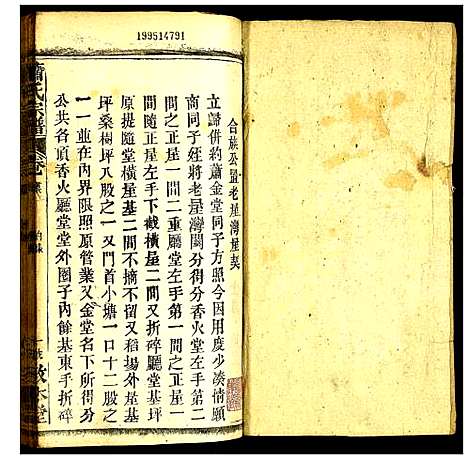 199514791
合族公置老屋灣屋契
立歸併約蕭金堂同子方照今因用度少湊情願
商同子姪將老屋灣鬮分得分香火堂左手第二
間之正屋一間二重廳堂左手第一間之正屋一
間隨正屋左手下截橫屋二間又折碎廳堂基坪
原提隨堂橫屋基二間不摘不留又稻場外屋基
坪桑樹坪八股之一又門首小塘一口十二股之
一一並在內界限照原管業又金堂名下所得分
公共各項香火廳堂堂外圈子內餘基東手折碎
蕭氏宗譜
敦本堂